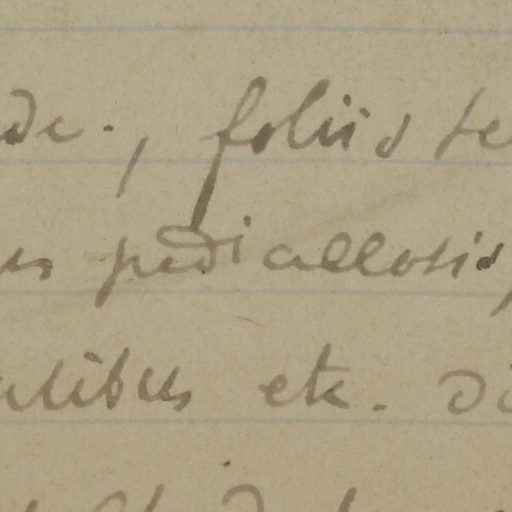 de., foliis te
us pedicellosis,
alibus etc. di